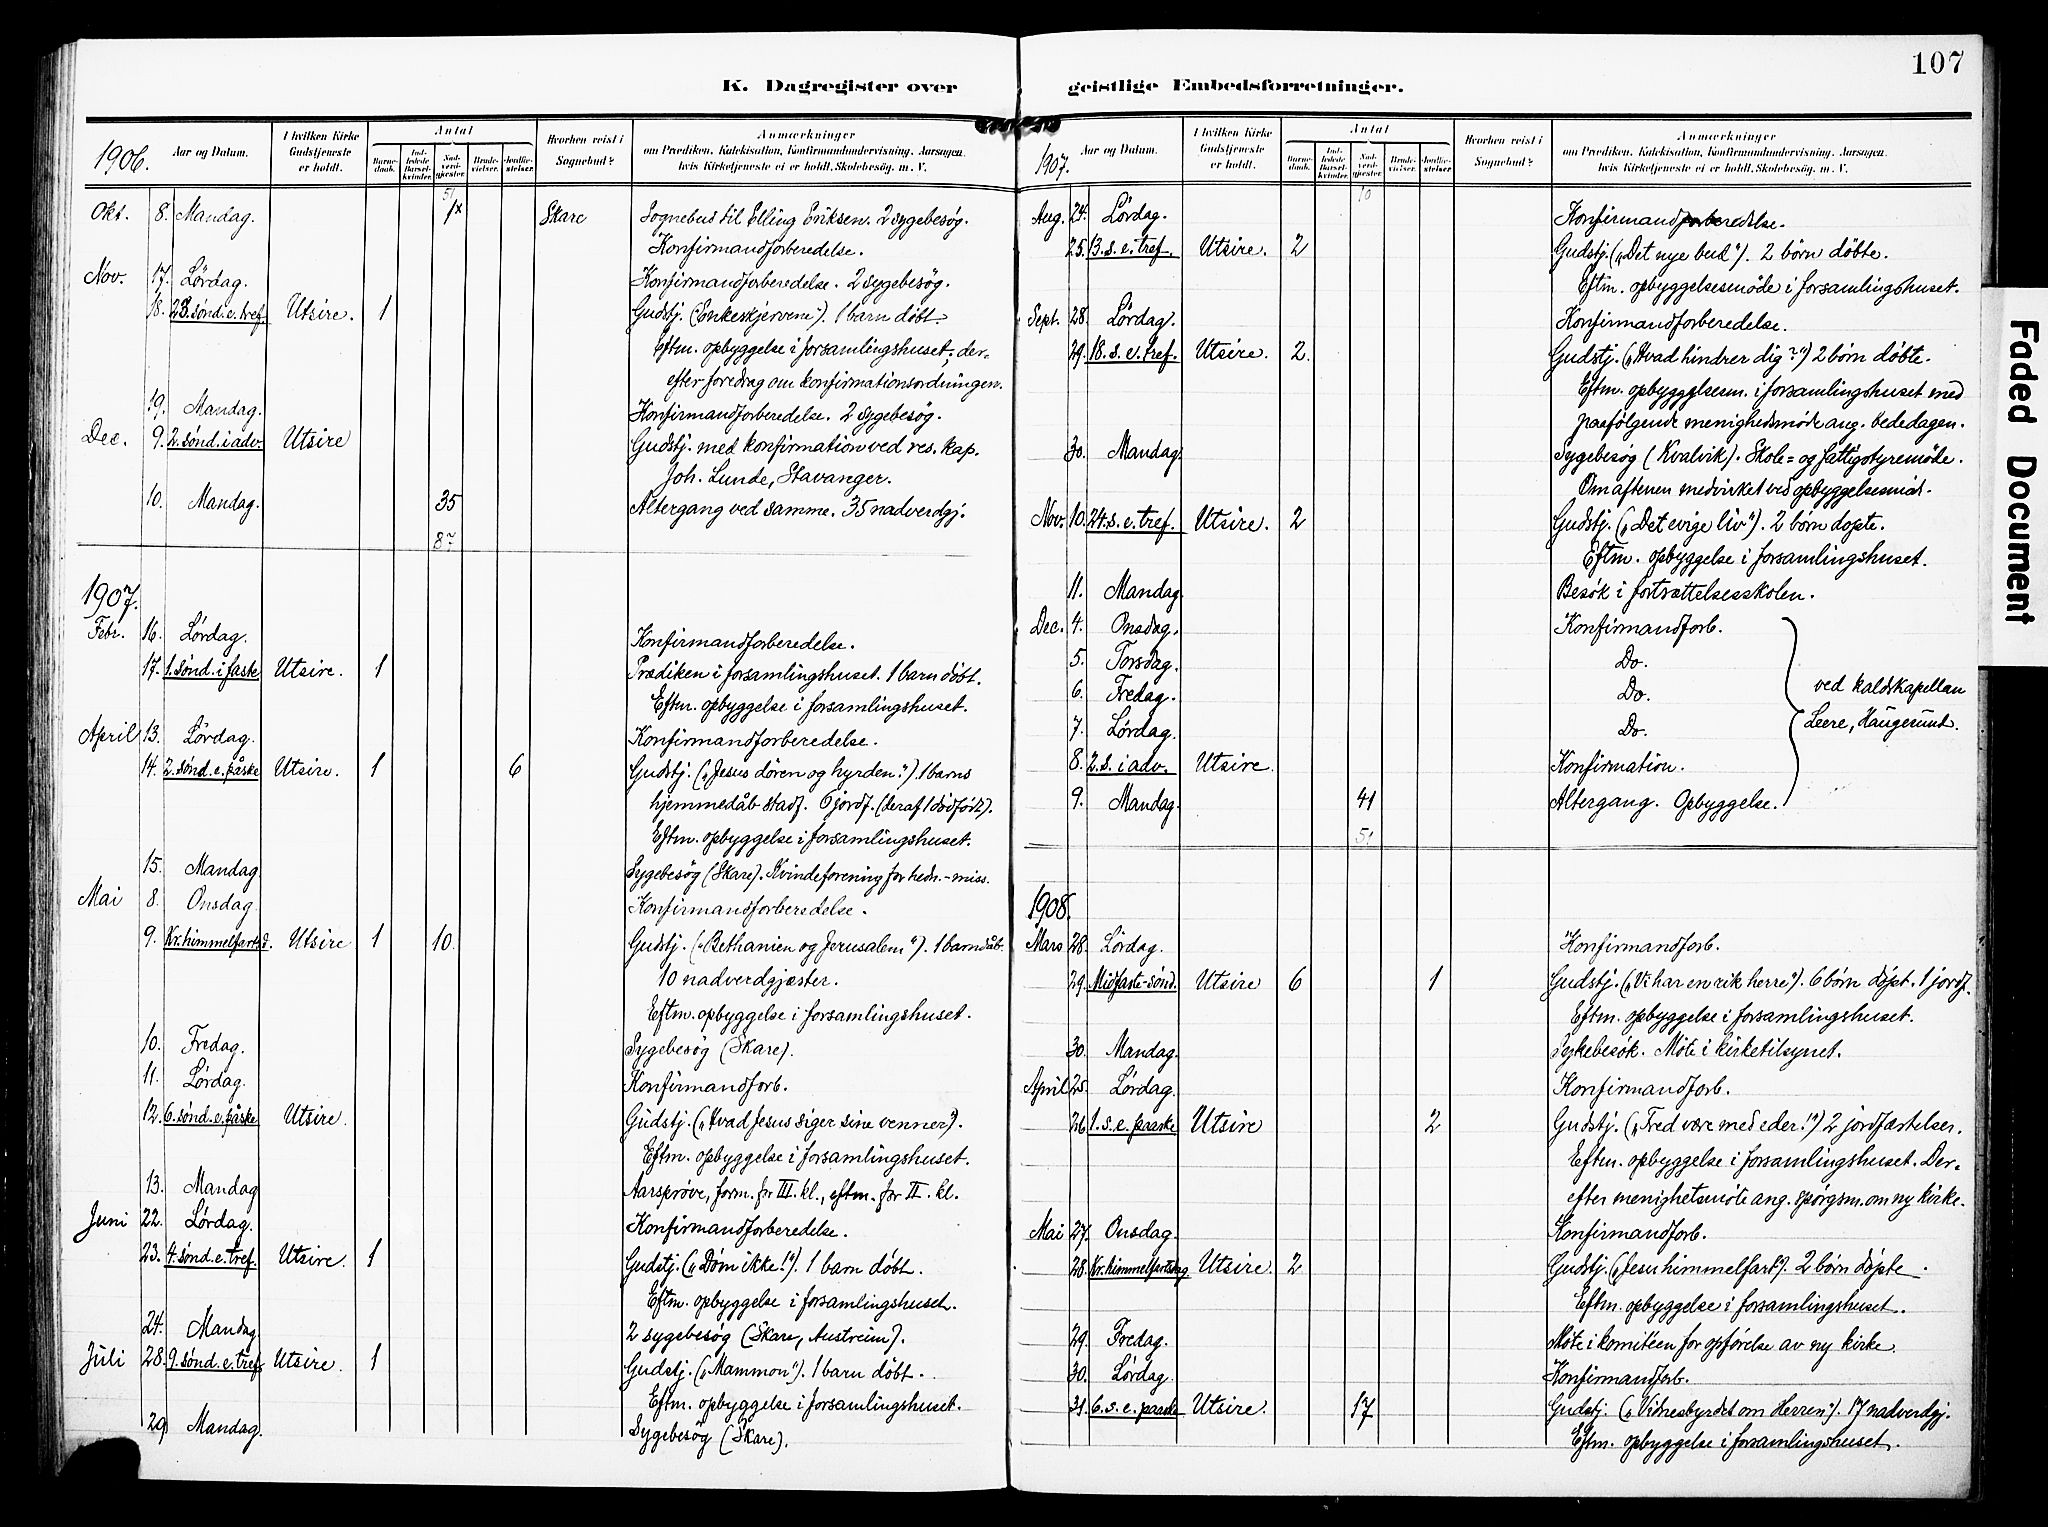 107
K. Dagregister over geistlige Embedsforretninger.
Faded Document
1906.
Aar og Datum.
I hvilken Kirke Gudstjeneste er holdt.
Antal
Barnedaab.
Indledede Barselkvinder.
Nadverdgjester.
Brudevielser.
Jordfæstelser.
Hvorhen reist i Sognebud?
Anmærkninger
om Prædiken, Katekisation, Konfirmandundervisning, Aarsagen, hvis Kirketjeneste ei er holdt, Skolebesøg, m. V.
51
Okt. 8. Mandag. 1x Skare Sognebud til Elling Eriksen. 2 sygebesøg.
Konfirmandforberedelse.
Nov. 17. Lördag. Konfirmandforberedelse. 2 sygebesög.
18. 23. sönd. e. tref. Utsire. 1 Gudstj. ("Enkeskjerven"). 1 barn döbt.
Eftm. opbyggelse i forsamlingshuset, der-
efter foredrag om konfirmationsordningen.
19. Mandag. Konfirmandforberedelse. 2 sygebesøg.
Dec. 9. 2. sönd. i adv. Utsire Gudstj. med konfirmation ved res. kap.
Joh. Lunde, Stavanger.
10. Mandag. 35 Altergang ved samme. 35 nadverdgj.
87
1907.
Febr. 16. Lördag. Konfirmandforberedelse.
17. 1. sönd. i faste Utsire. 1 Prædiken i forsamlingshuset. 1 barn döbt.
Eftm. opbyggelse i forsamlingshuset.
April 13. Lördag. Konfirmandforberedelse.
14. 2. sönd. e. påske Utsire. 1 6 Gudstj. („Jesus dören og hyrden"). 1 barns
hjemmedåb stadf. 6 jordf. (deraf 1 dödfödt).
Eftm. opbyggelse i forsamlingshuset.
15. Mandag Sygebesög (Skare). Kvindeforening for hedn.-miss.
Mai 8. Onsdag Konfirmandforberedelse.
9. Kr. himmelfartsd. Utsire 1 10. Gudstj. („Bethanien og Jerusalem"). 1 barndåb.
10 nadverdgjæster.
Eftm. opbyggelse i forsamlingshuset.
10. Fredag. Sygebesög (Skare).
11. Lördag. Konfirmandforb.
12. 6. sönd. e. påske Utsire. Gudstj. („Hvad Jesus siger sine venner").
Eftm. opbyggelse i forsamlingshuset.
13. Mandag Aarsprøve, form. for III. kl., eftm. for II. kl.
Juni 22. Lördag. Konfirmandforberedelse.
23. 4. sönd. e. tref. Utsire. 1 Gudstj. („Döm ikke!"). 1 barn döbt.
Eftm. opbyggelse i forsamlingshuset.
24. Mandag. 2 sygebesøg (Skare, Austreim).
Juli 28. 9. sönd. e. tref. Utsire. 1 Gudstj. („Mammon"). 1 barn döbt.
Eftm. opbyggelse i forsamlingshuset.
29 Mandag. Sygebesøg (Skare).
1907.
Aar og Datum.
I hvilken Kirke Gudstjeneste er holdt.
Antal
Barnedaab.
Indledede Barselkvinder.
Nadverdgjester.
Brudevielser.
Jordfæstelser.
Hvorhen reist i Sognebud?
Anmærkninger
om Prædiken, Katekisation, Konfirmandundervisning, Aarsagen, hvis Kirketjeneste ei er holdt, Skolebesøg, m. V.
10
Aug. 24. Lördag. Konfirmandforberedelse.
25. 13. s. e. tref. Utsire. 2 Gudstj. („Det nye bud"). 2 börn döbte.
Eftm. opbyggelsesmöde i forsamlingshuset.
Sept. 28. Lördag. Konfirmandforberedelse.
29. 18. s. e. tref. Utsire. 2. Gudstj. („Hvad hindrer dig?") 2 börn döbte.
Eftm. opbyggelsesm. i forsamlingshuset med
paafölgende menighedsmöde ang. bededagen.
30. Mandag. Sygebesög (Kvalvik). Skole= og fattigstyremöde.
Om aftenen medvirket ved opbyggelsesmöt.
Nov. 10. 24. s. e. tref. Utsire. 2 Gudstj. („Det evige liv"). 2 börn döpte.
Eftm. opbyggelse i forsamlingshuset.
11. Mandag. Besök i fortsættelsesskolen.
Dec. 4. Onsdag. Konfirmandforb.
5. Torsdag. Do.
6. Fredag. Do.
7. Lördag. Do.
ved kaldskapellan
Leere, Haugesund.
8. 2. s. i adv. Utsire. Konfirmation.
9. Mandag. 41 Altergang. Opbyggelse.
51
1908.
Mars 28. Lördag. Konfirmandforb.
29. Midfaste-sönd. Utsire 6 1 Gudstj. („Vi har en rik herre"). 6 börn döpt. 1 jordf.
Eftm. opbyggelse i forsamlingshuset.
30. Mandag. Sykebesök. Möte i kirketilsynet.
April 25. Lördag. Konfirmandforb.
26. 1. s. e. paaske Utsire 2 Gudstj. („Fred være med eder!") 2 jordfæstelser.
Eftm. opbyggelse i forsamlingshuset. Der-
efter menighetsmöte ang. spörgsm. om ny kirke.
Mai 27. Onsdag. Konfirmandforb.
28. Kr. himmelfartsdag Utsire. 2 Gudstj. („Jesu himmelfart"). 2 börn döpte.
Eftm. opbyggelse i forsamlingshuset.
29. Fredag. Möte i komitéen for opförelse av ny kirke.
30. Lördag. Konfirmandforb.
31. 6. s. e. paaske Utsire. 17 Gudstj. („Vidnesbyrdet om Herren"). 17 nadverdgj.
Eftm. opbyggelse i forsamlingshuset.